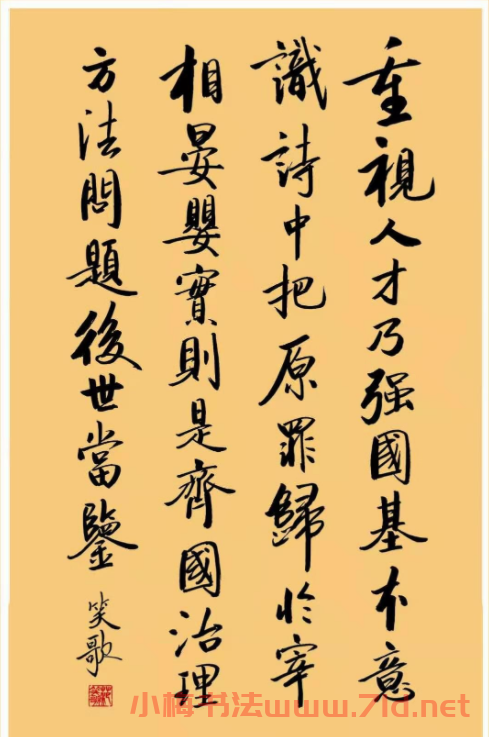 重視人才乃强國基本意
識詩中把原罪歸於宰
相晏嬰實則是齊國治理
方法問題後世當鑒
笑歌
小梅书法www.71d.net